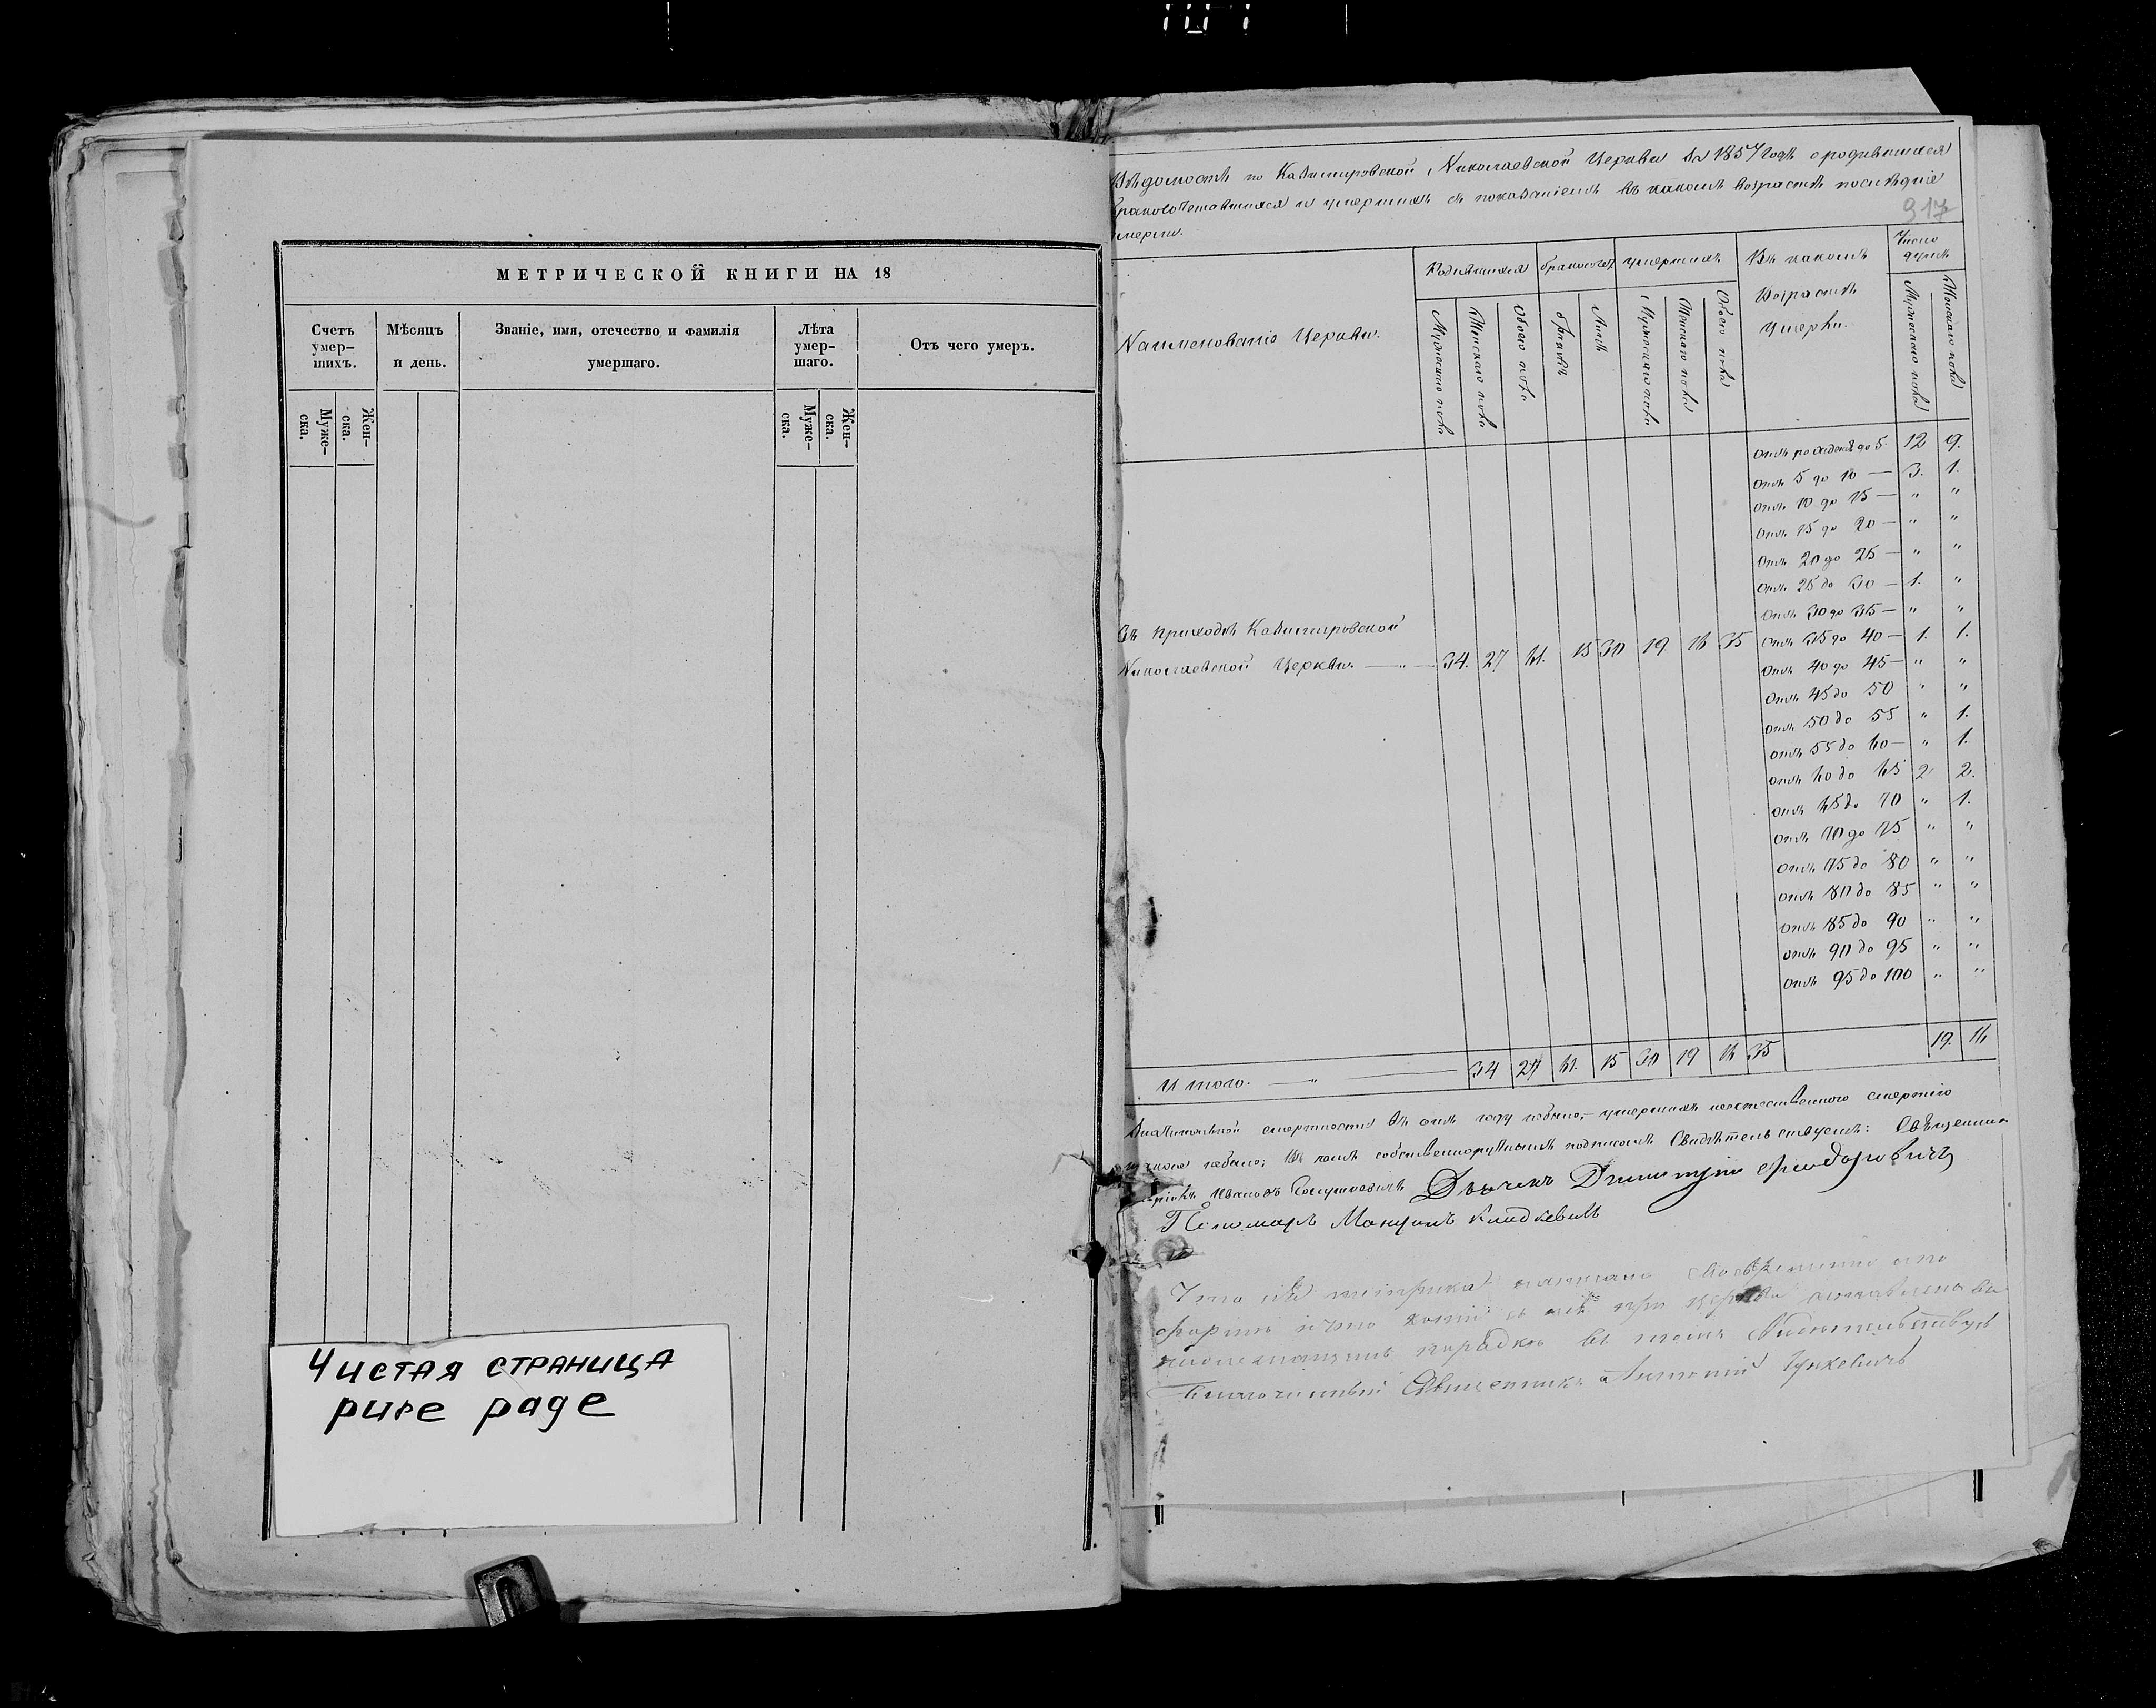 МЕТРИЧЕСКОЙ КНИГИ НА 18
Счетъ умер-шихъ.
Мѣсяцъ и день.
Званіе, имя, отечество и фамилія умершаго.
Лѣта умер-шаго.
Отъ чего умеръ.
Муже-ска.
Жен-ска.
Муже-ска.
Жен-ска.
Чистая страница
pure page
Вѣдомость по Казимировской Николаевской Церкви за 1857 годъ о родившихся
бракосочетавшихся и умершихъ съ показаніемъ въ какомъ возрастѣ послѣдніе
умерли.
917
Наименованіе Церкви.
Родившихся
умершихъ
Въ какомъ Возрастѣ умерли.
Число душъ
Мужескаго пола
Женскаго пола
Обоего пола
браковъ
Лицъ
Мужескаго пола
Женскаго пола
Обоего пола
Мужескаго пола
Женскаго пола
отъ рожденія до 5. 12 9.
отъ 5 до 10 — 3. 1.
отъ 10 до 15 — " "
отъ 15 до 20 — " "
отъ 20 до 25 — " "
отъ 25 до 30 — 1. "
отъ 30 до 35 — " "
Въ приходѣ Казимировской
Николаевской Церкви. — " — 34. 27 61. 15 30 19 16 35
отъ 35 до 40 — 1. 1.
отъ 40 до 45 — " "
отъ 45 до 50 " "
отъ 50 до 55 " 1.
отъ 55 до 60 — " 1.
отъ 60 до 65 2 2.
отъ 65 до 70 " 1.
отъ 70 до 75 " "
отъ 75 до 80 " "
отъ 80 до 85 " "
отъ 85 до 90 " "
отъ 90 до 95 " "
отъ 95 до 100 " "
Итого. — " — 34 27 61. 15 30 19 16 35 19. 16
смертности въ семъ году небыло, — умершихъ неестественною смертію
небыло; Въ чемъ собственноручнымъ подписомъ Свидѣтельствуемъ: Священникъ
Дьячекъ Димитрій Феодоровичъ
Пономарь
Что сія метрика написана по
формѣ и что копія съ ней при церкви оставлена въ
порядкѣ въ томъ Свидѣтельствую
Благочинный Священникъ Антоній